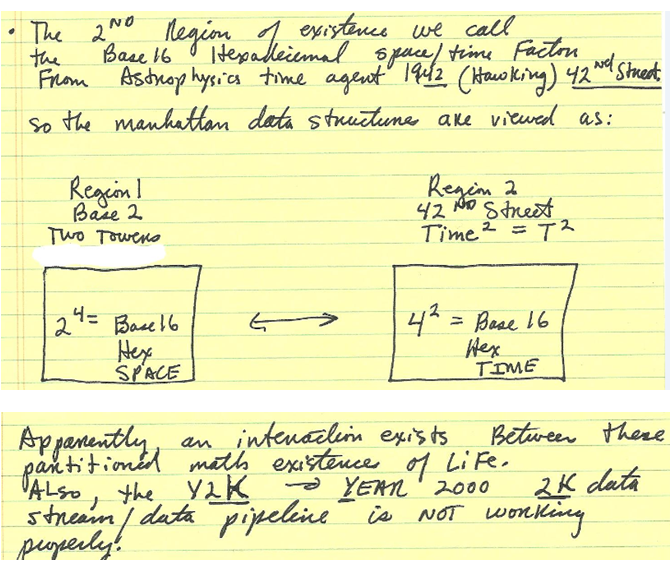 • The 2ND Region of existence we call
the Base 16 Hexadecimal space/time Factor
From Astrophysics time agent 1942 (Hawking) 42nd Street
so the manhattan data structures are viewed as:
Region 1
Base 2
TWO TOWERS
Region 2
42ND Street
Time² = T²
2⁴ = Base 16
Hex
SPACE
4² = Base 16
Hex
TIME
Apparently, an interaction exists Between these
partitioned math existences of LiFe.
ALSO, the Y2K → YEAR 2000 2K data
stream/data pipeline is NOT working
properly.